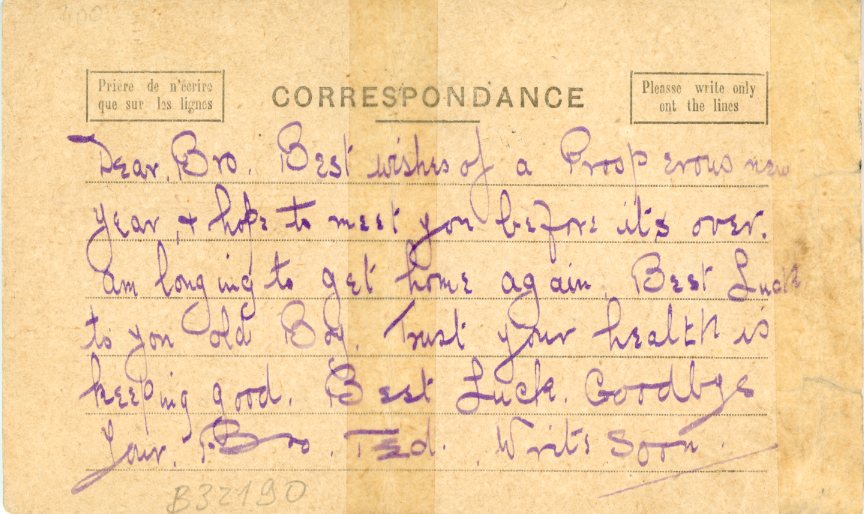 Prière de n'écrire
que sur les lignes
CORRESPONDANCE
Pleasse write only
ont the lines
Dear, Bro. Best wishes of a Prosperous new
year, & hope to meet you before it's over.
am longing to get home again. Best Luck
to you old Boy. Trust your health is
keeping good. Best Luck. Goodbye
Your. Bro. Ted. Write Soon.
B32190